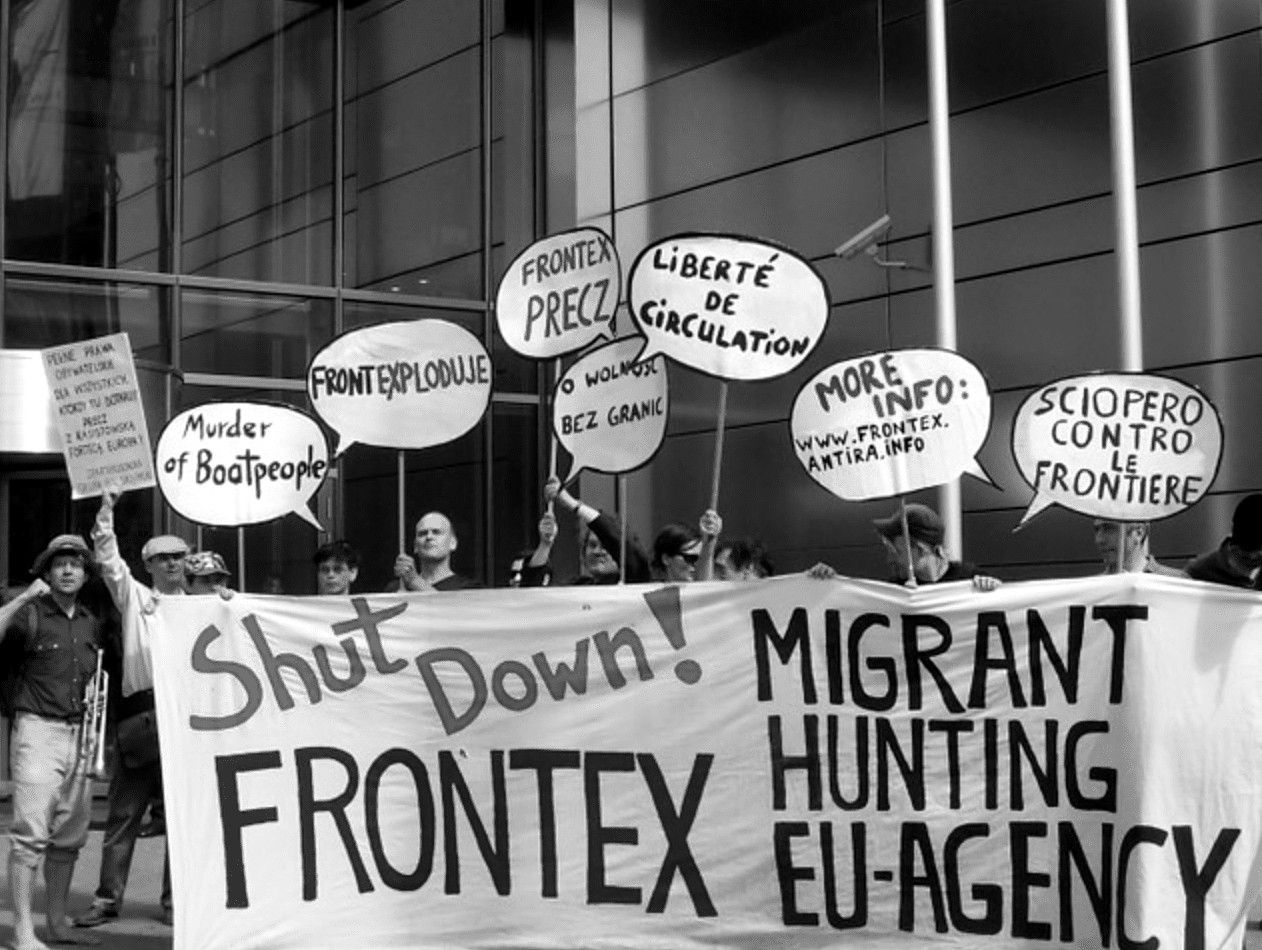 PEŁNE PRAWA
OBYWATELSKIE
DLA WSZYSTKICH,
KTÓRZY TU
PRZECZ
Z RASISTOWSKĄ
FORTECĄ EUROPA!
Murder
of Boatpeople
FRONTEXPLODUJE
FRONTEX
PRECZ
O WOLNOŚĆ
BEZ GRANIC
LiBERTÉ
DE
CiRCULATiON
MORE
INFO:
WWW.FRONTEX.
ANTIRA.INFO
SCIOPERO
CONTRO
LE
FRONTIERE
Shut Down!
FRONTEX
MIGRANT
HUNTING
EU-AGENCY